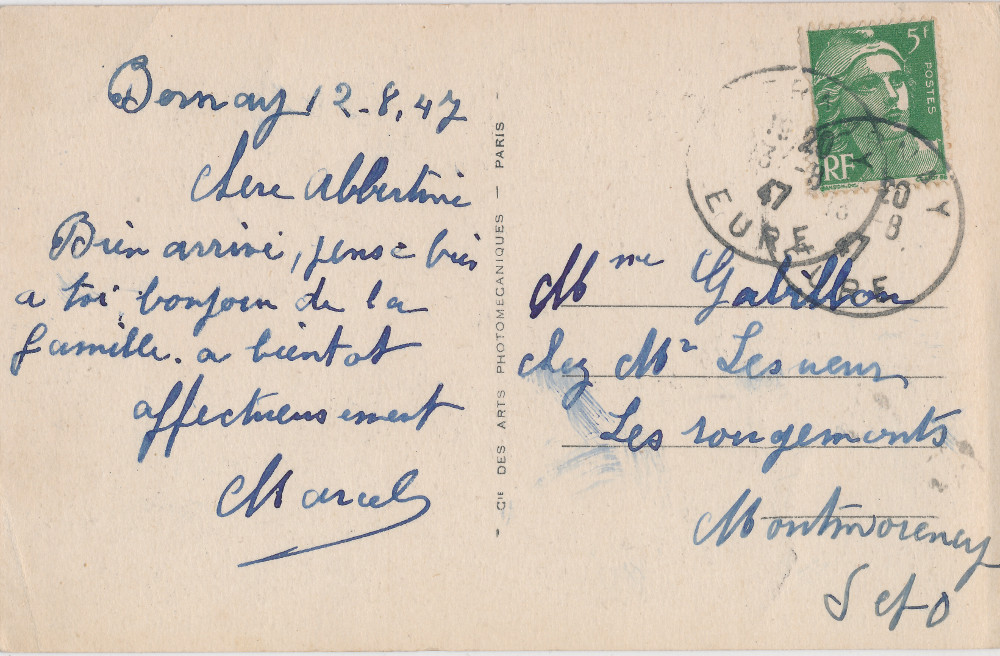 Bernay 12-8.47
Chere Abbertine
Bien arrivé, pense bien
a toi bonjour de la
famille. a bientot
affectueusement
Marcel
- Cie DES ARTS PHOTOMECANIQUES - PARIS -
5f
POSTES
RF
20
13-8
47
EURE
20
13-8
47
EURE
Mme Gabillon
chez Mr Lesueur
Les rougemonts
Montmorency
S et O